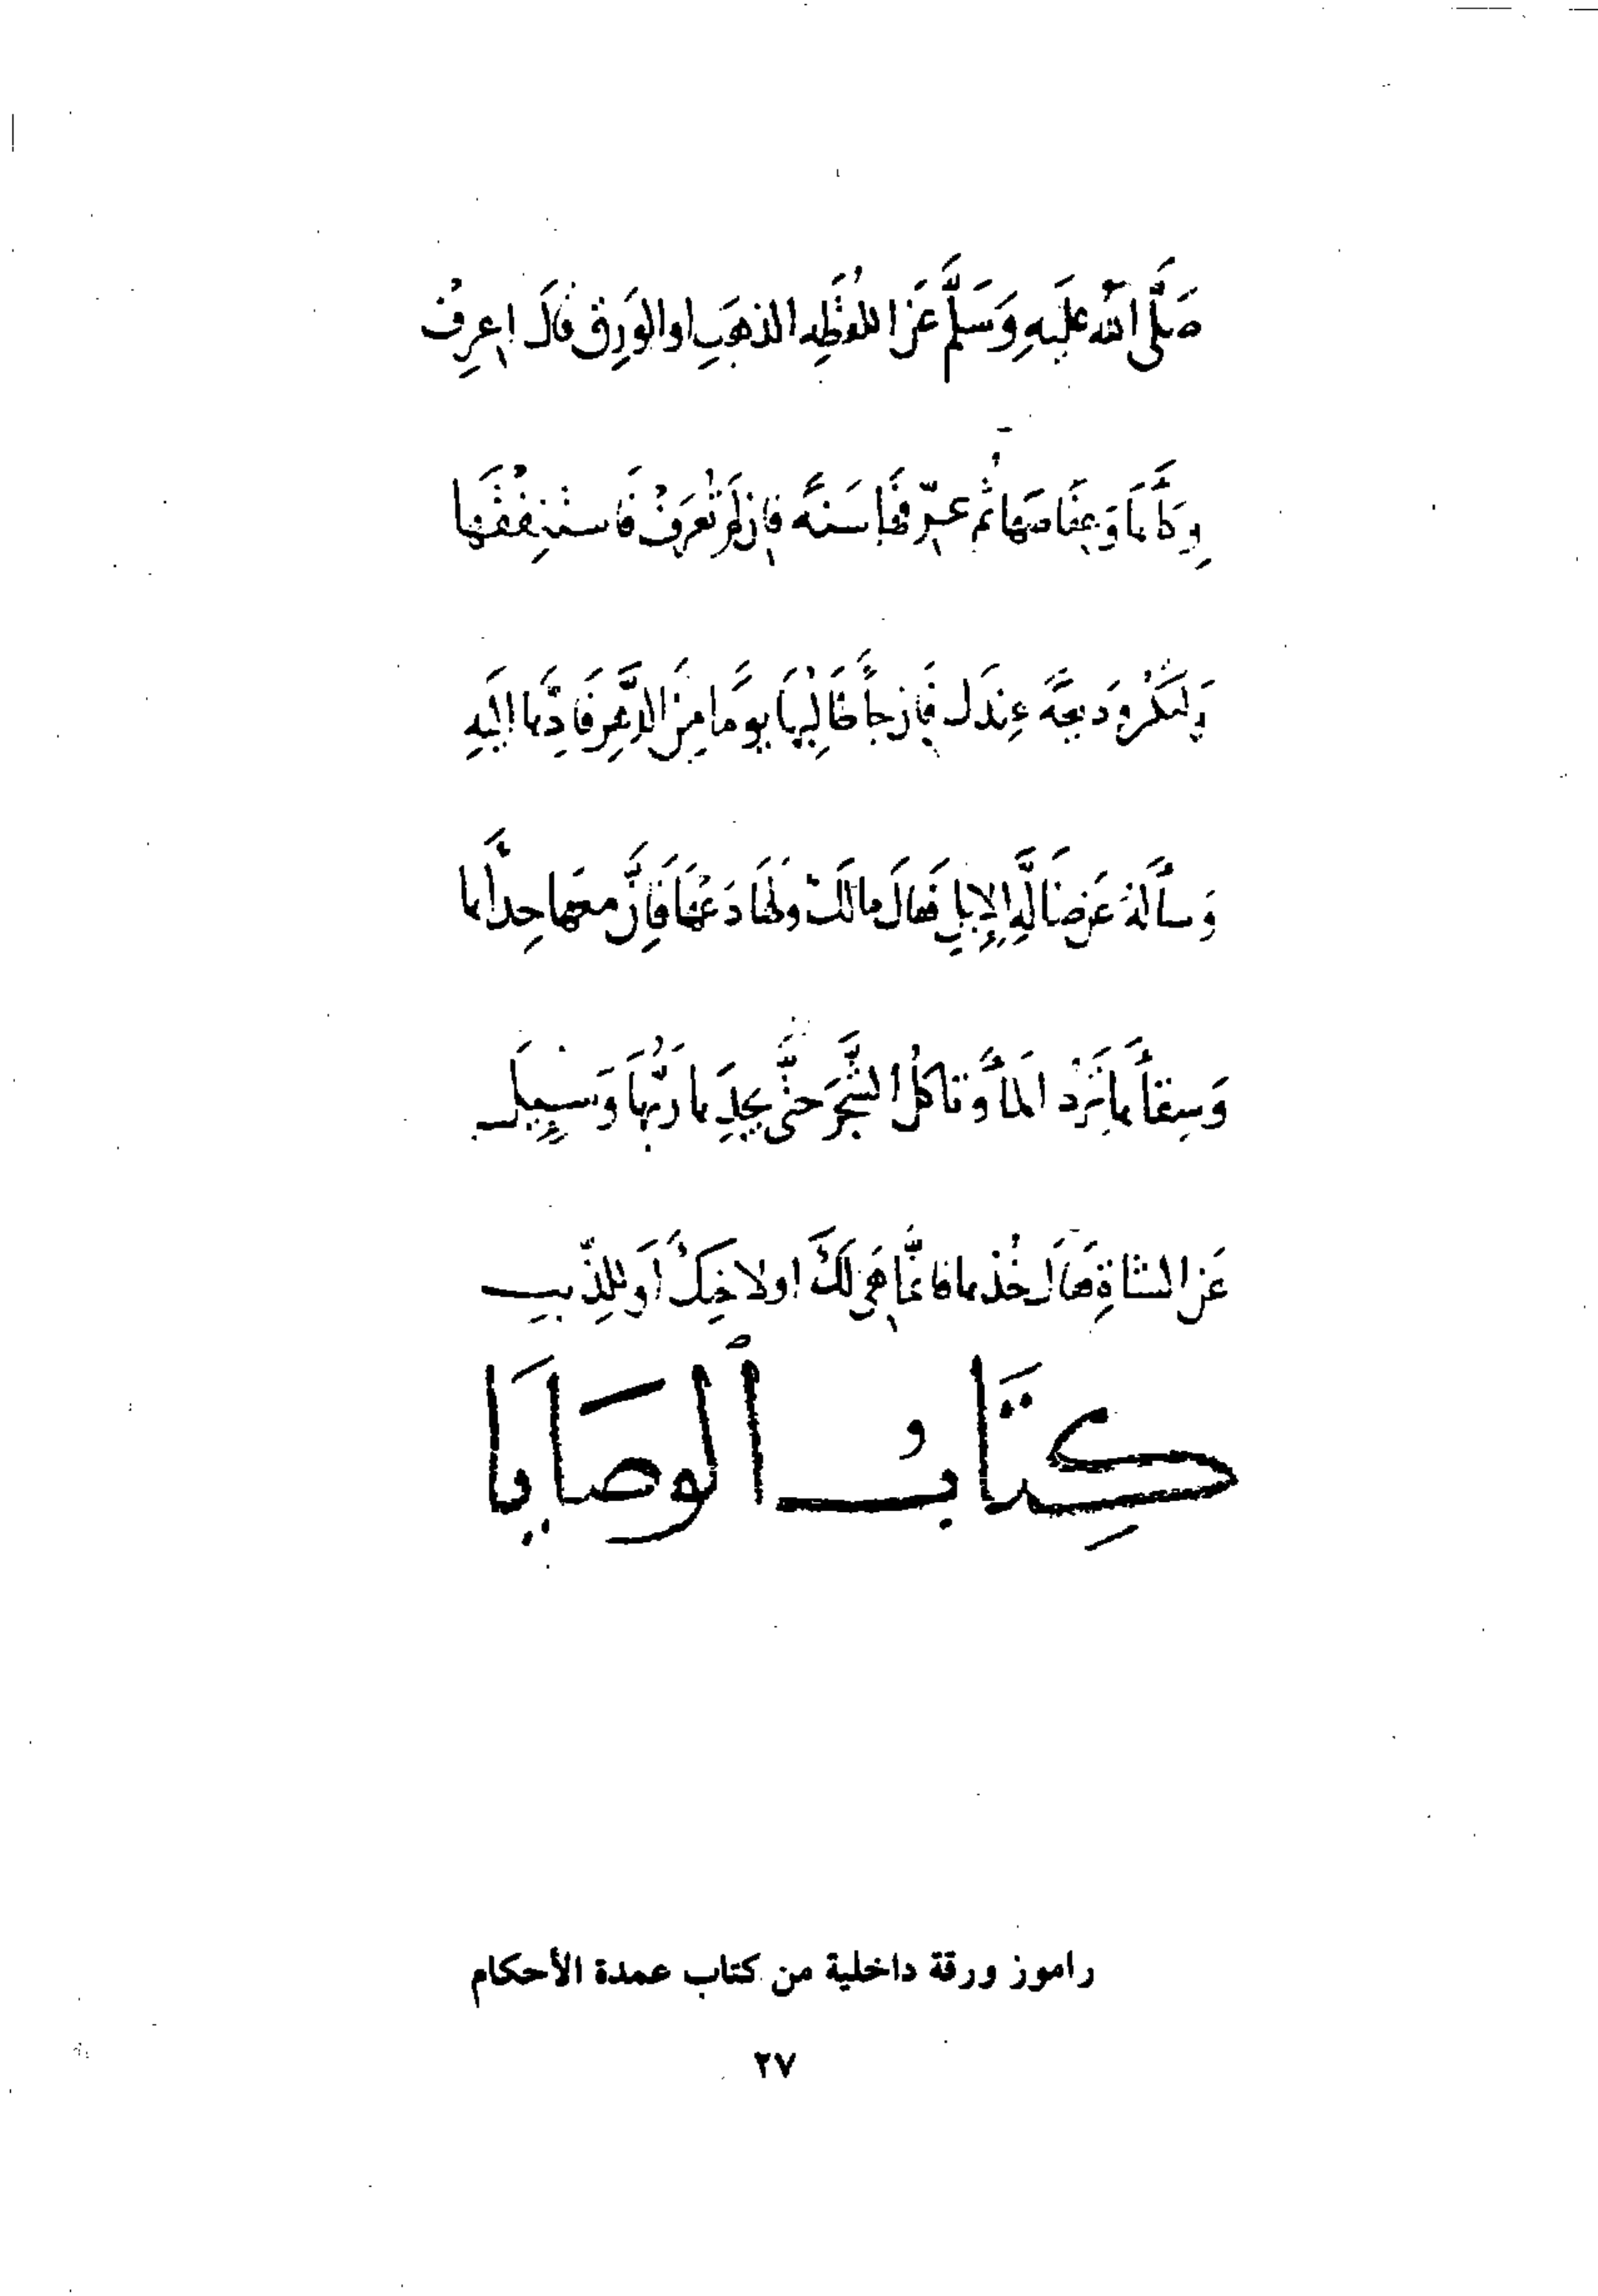 صَلَّى اللهُ عَلَيهِ وَسَلَّمَ عَنِ اللُقَطَةِ الذهَبِ او الوَرِقِ فَالَ اعرِفْ
وِكَأَهَا وَعِفَاصَهَا ثُم عَرِّفْهَا سَنَةً فَإِن لَم تُعرَفْ فَاستَنفِقْهَا
وَلتَكُنْ وَدِيعَةً عِندَكَ فَإِن جَأَ طَالِبُهَا يَومًا مِنَ الدَّهرِ فَادِّهَا الَيهِ
وَسأَلَهُ عَن ضَالَّةِ الإِبِلِ فَقَالَ مالَكَ وَلَهَا دَعْهَا فَإِنَّ معَهَا حِذَأَهَا
وَسِقَأَهَا تَرِدُ المَأَ وَتاكُلُ الشَّجَرَ حَتَّى يَجِدَهَا رَبُّهَا وَسُئِلَ
عَنِ الشاةِ فَقَالَ خُذهَا فَانَّمَا هِيَ لَكَ او لاخِيكَ أَو لِلذِّيبِ
كِتَابُ ٱلوصَايَا
راموز ورقة داخلية من كتاب عمدة الأحكام
٢٧